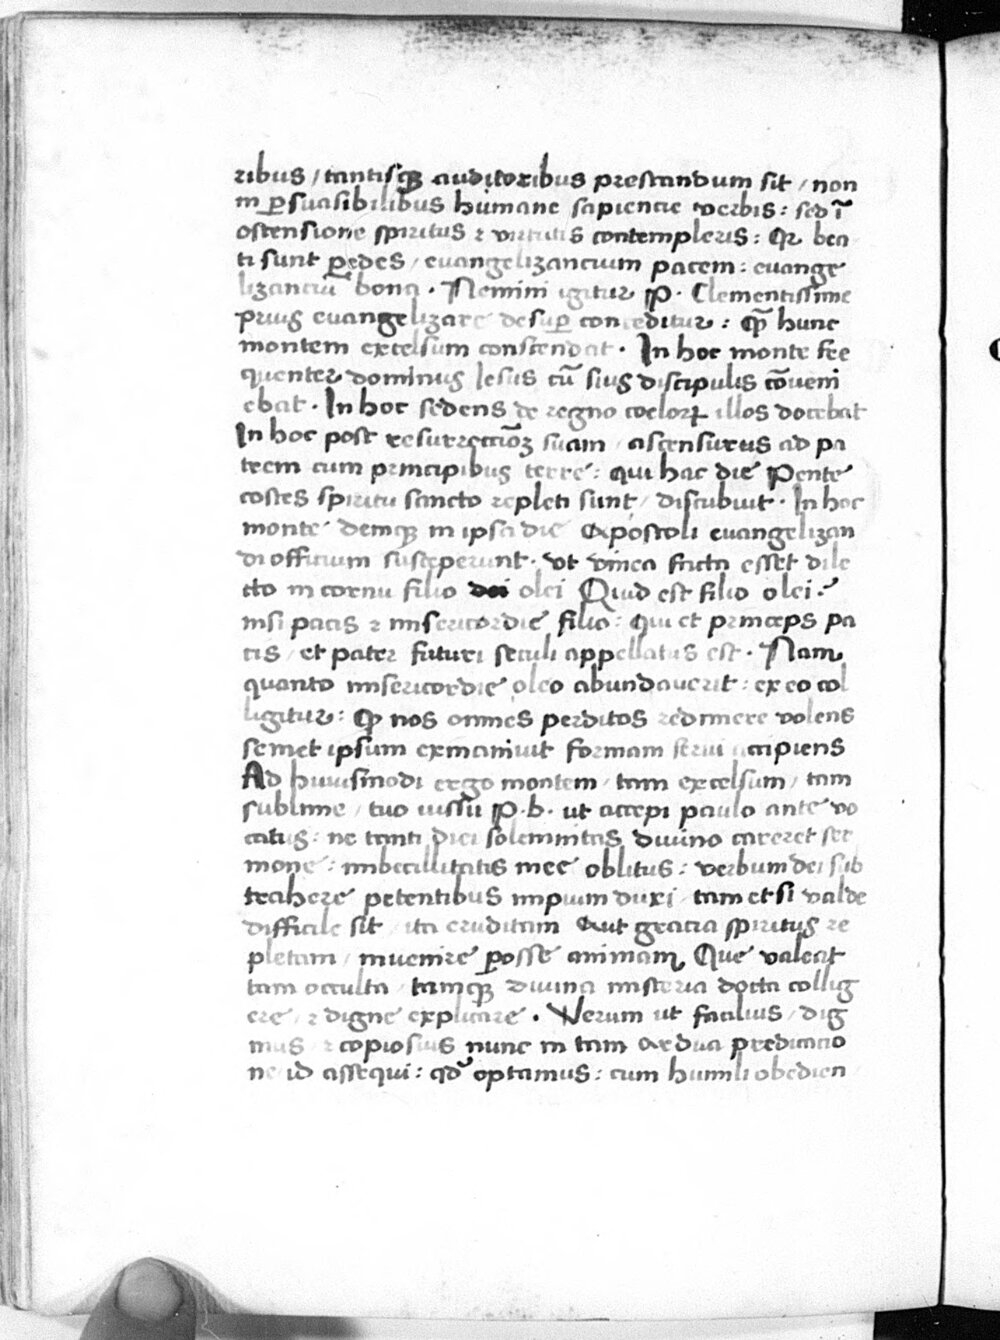 ribus / tantisqȝ auditoribus prestandum sit / non
in ꝑsuasibilibus humane sapiencie verbis : sed ī
ostensione spiritus ⁊ virtutis contempleris : Qꝛ bea
ti sunt pedes / euangelizancium pacem : euange
lizanciū bona . Nemini igitur P . Clementissime
prius euangelizare desuꝑ conceditur : qꝫ hunc
montem excelsum conscendat . In hoc monte fre
quenter dominus Iesus cū suis discipulis cōueni
ebat . In hoc sedens de regno coeloꝝ illos docebat
In hoc post resurrecciōꝫ suam / ascensurus ad pa
trem cum principibus terre : qui hac die Pente
costes spiritu sancto repleti sunt / discubuit . In hoc
monte demqꝫ in ipsa die Apostoli euangelizan
di officium susceperunt . vt vinea facta esset dile
cto in cornu filio olei Quid est filio olei .
nisi pacis ⁊ misericordie filio : Qui et princeps pa
cis / et pater futuri seculi appellatus est . Nam
quanto misericordie oleo abundauerit : ex eo col
ligitur : qꝫ nos omnes perditos redimere volens
semet ipsum exinaniuit formam serui accipiens
Ad huiusmodi ergo montem / tam excelsum / tam
sublime / tuo iussu P . b . ut accepi paulo ante vo
catus : ne tanti diei solemnitas diuino careret ser
mone : imbecillitatis mee oblitus : verbum dei sub
trahere petentibus impium duxi / tametsi valde
difficile sit / ita eruditam Aut gracia spiritus re
pletam / inuenire posse animam, Que valeat
tam occulta / tamqꝫ diuina misteria docta collig
ere / ⁊ digne explicare . Verum ut facilius / dig
nius / ⁊ copiosius nunc in tam ardua predicacio
ne id assequi : qd optamus : cum humili obedien